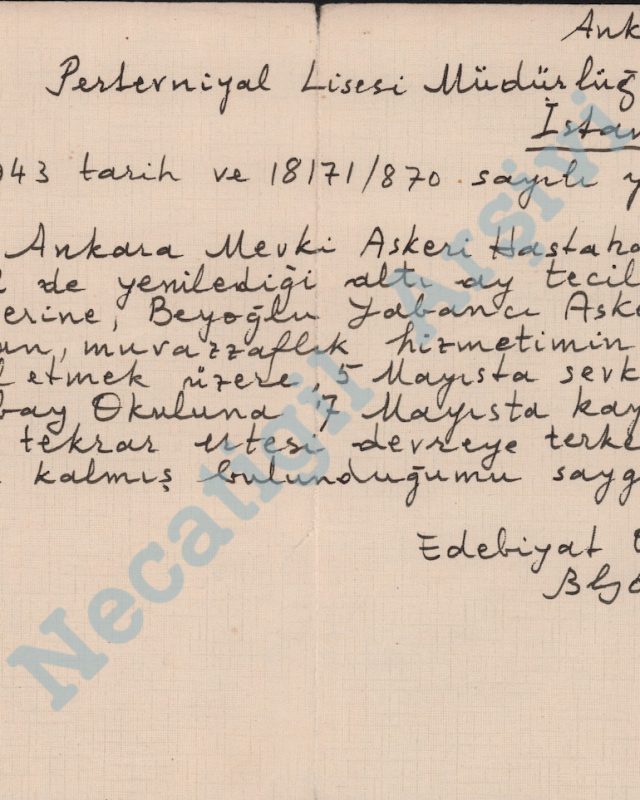 Ank
Pertevniyal Lisesi Müdürlüğ
İstan
943 tarih ve 18171/870 sayılı y
Ankara Mevki Askeri Hastaha
de yenilediği altı ay tecil
erine, Beyoğlu Yabancı Aske
un, muvazzaflık hizmetimin
etmek üzere, 5 Mayısta sevk
bay Okuluna 7 Mayısta kay
tekrar ertesi devreye terke
kalmış bulunduğumu sayg
Edebiyat Ö
Necatigil Arşivi